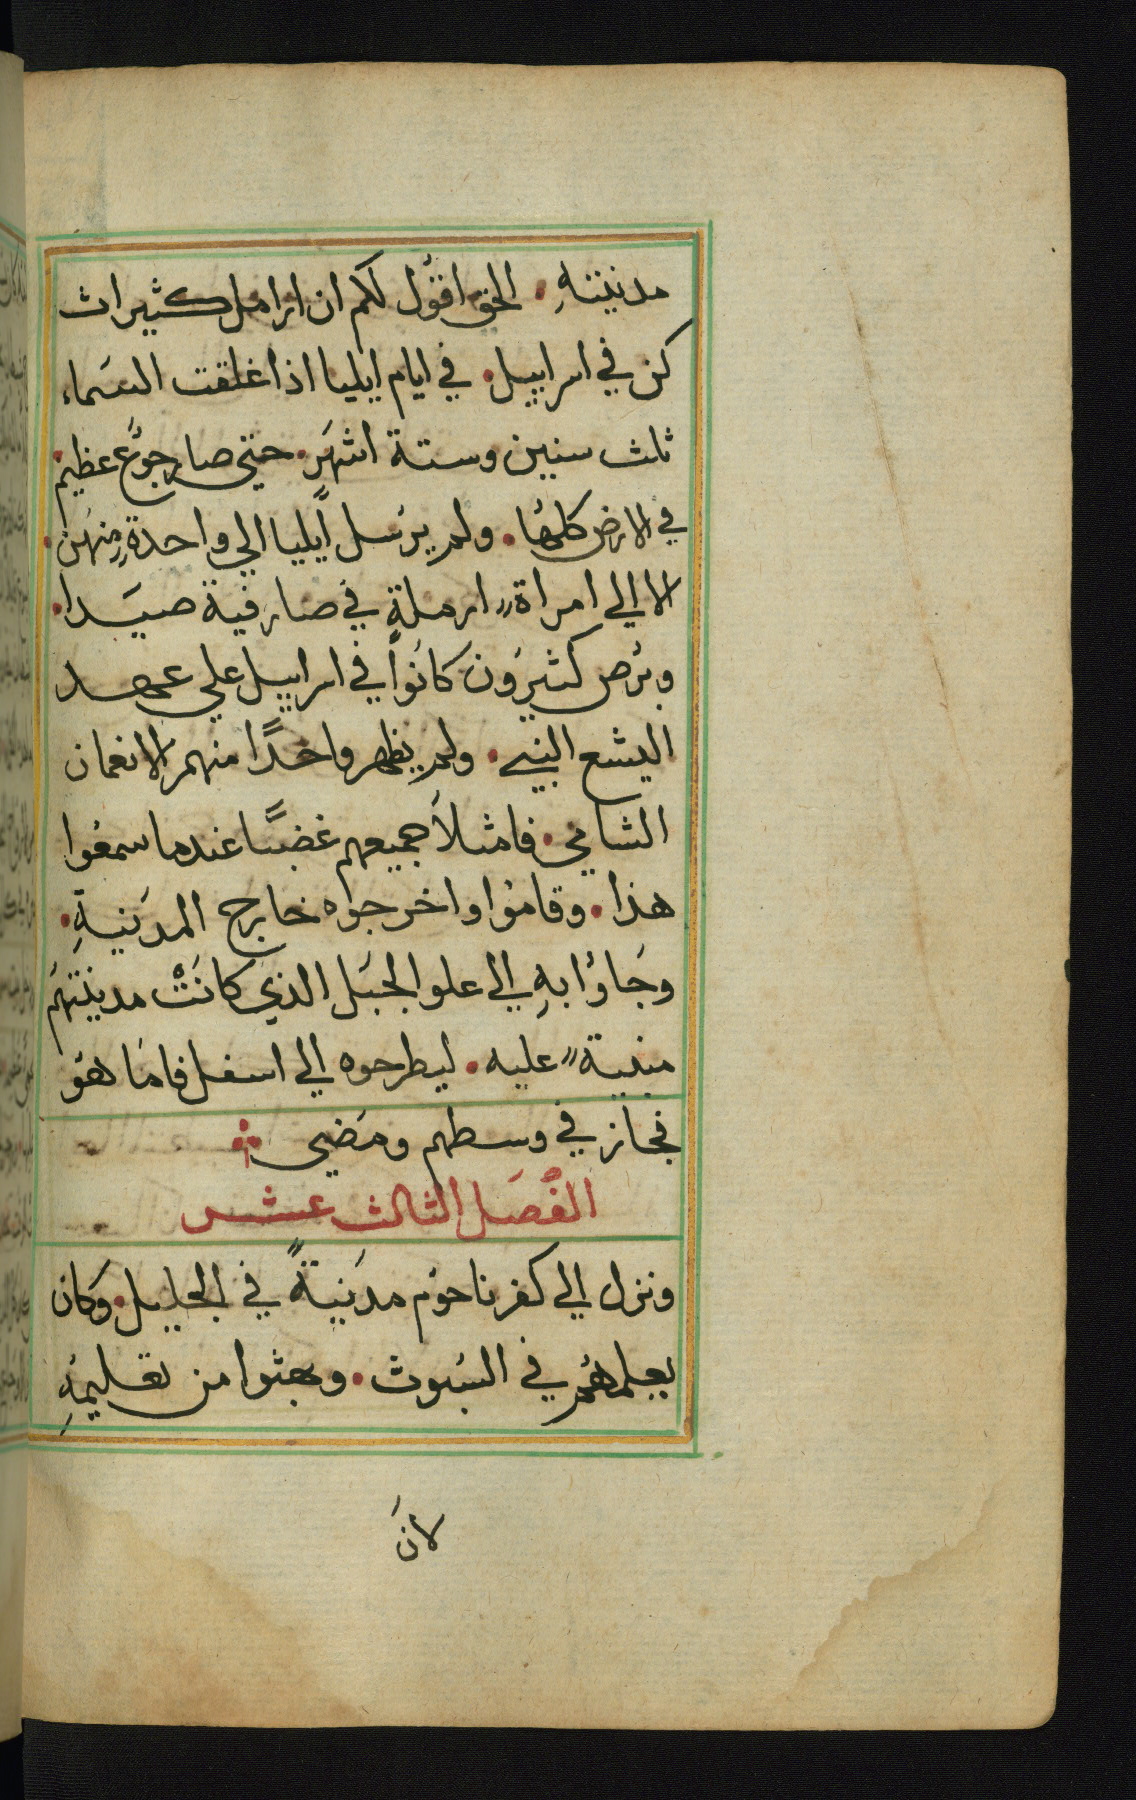 مدينته. الحق اقول لكم ان ارامل كثيرات
كن في اسراييل. في ايام ايليا اذ اغلقت السماء
ثلث سنين وستة اشهر. حتي صار جوع عظيم.
في الارض كلها. ولم يرسل ايليا الي واحدة منهن.
الا الي امراة ارملة في صارفية صيدا.
وبرص كثيرون كانوا في اسراييل علي عهد
اليشع النبي. ولم يطهر واحدًا منهم الا نعمان
الشامي. فامتلا جميعهم غضبًا عندما سمعوا
هذا. وقاموا واخرجوه خارج المدينة.
وجاوا به الي علو الجبل الذي كانت مدينتهم
مبنية عليه. ليطرحوه الي اسفل فاما هو
فجاز في وسطهم ومضي
الفصل الثالث عشر
ونزل الي كفرناحوم مدينةً في الجليل. وكان
يعلمهم في السبوت. وبهتوا من تعليمه
لان